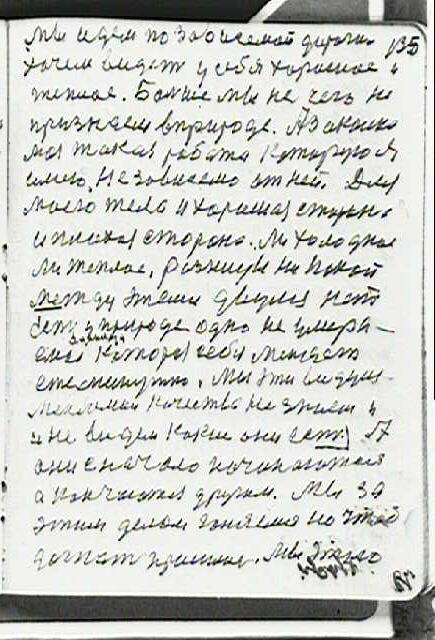 Мы идем по зависемой дороги 135
хочем видет у себя хорошое и
теплое. Больше мы не чего не
признаем в природе. А закалка
моя такая работа которую я
имею, независемо от ней. Для
моего тела и хорошая сторона
и плохая сторона. Ли холодное
ли теплое, разницы ни какой
между этими двумя нету
Есть у природе одно не умира-
емая которая себя меняет
ежеминутно. Мы эти
качества не знаем и
и не видим какие они есть. А
они с начало начинаются
а кончаются другим. Мы за
этим делом гоняемся чтоб
догнать. Мы этого